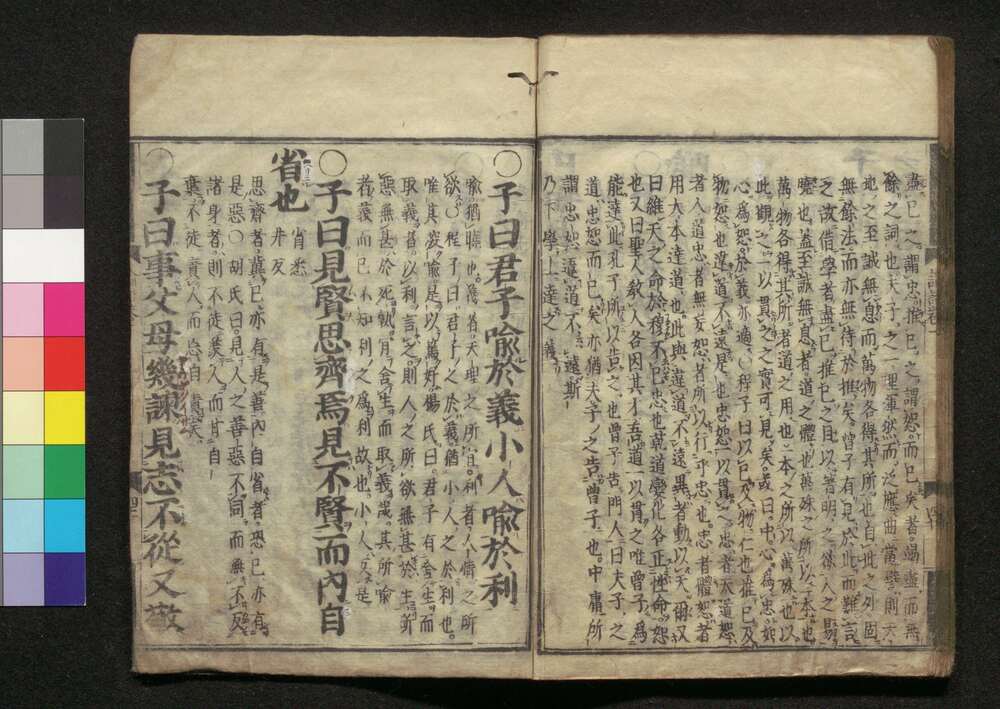 盡己之謂忠推己之謂恕而已矣者竭盡而無
餘之詞也夫子之一理渾然而泛應曲當譬則天
地之至誠無息而萬物各得其所也自此之外固
無餘法而亦無待於推矣曾子有見於此而難言
之故借學者盡己推己之目以著明之欲人之易
曉也蓋至誠無息者道之體也萬殊之所以一本也
萬物各得其所者道之用也一本之所以萬殊也以
此觀之一以貫之之實可見矣或曰中心為忠如
心為恕於義亦通○程子曰以己及物仁也推己及
物恕也違道不遠是也忠恕一以貫之忠者天道恕
者人道忠者無妄恕者所以行乎忠也忠者體恕者
用大本達道也此與違道不遠異者動以天爾又
曰維天之命於穆不已忠也乾道變化各正性命恕
也又曰聖人教人各因其才吾道一以貫之唯曾子為
能達此孔子所以告之也曾子告門人曰夫子之
道忠恕而已矣亦猶夫子之告曾子也中庸所
謂忠恕違道不遠斯
乃下學上達之義
○子曰君子喻於義小人喻於利
喻猶曉也義者天理之所宜利者人情之所
欲○程子曰君子之於義猶小人之於利也
唯其深喻是以篤好楊氏曰君子有舍生而
取義者以利言之則人之所欲無甚於生所
惡無甚於死孰肯舍生而取義哉其所喻
者義而已不知利之為利故也小人反是
○子曰見賢思齊焉見不賢而內自
省也
省悉井反
思齊者冀己亦有是善內自省者恐己亦有
是惡○胡氏曰見人之善惡不同而無不反
諸身者則不徒羨人而甘自
棄不徒責人而忘自責矣
○子曰事父母幾諫見志不從又敬